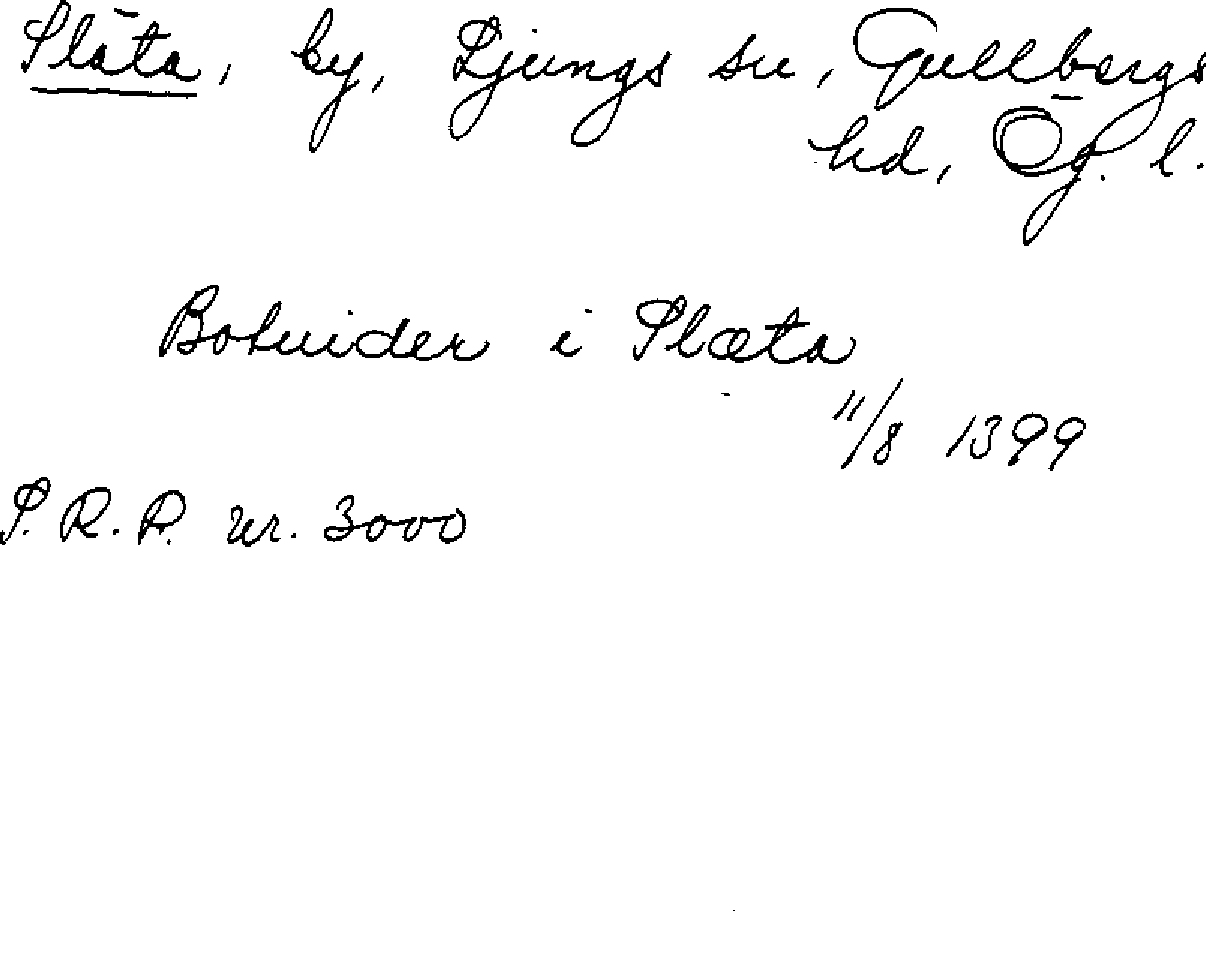 Släta, by, Ljungs sn, Gullbergs
hd, Ög. l.
Botuider i Slæta
11/8 1399
S. R. P. nr. 3000